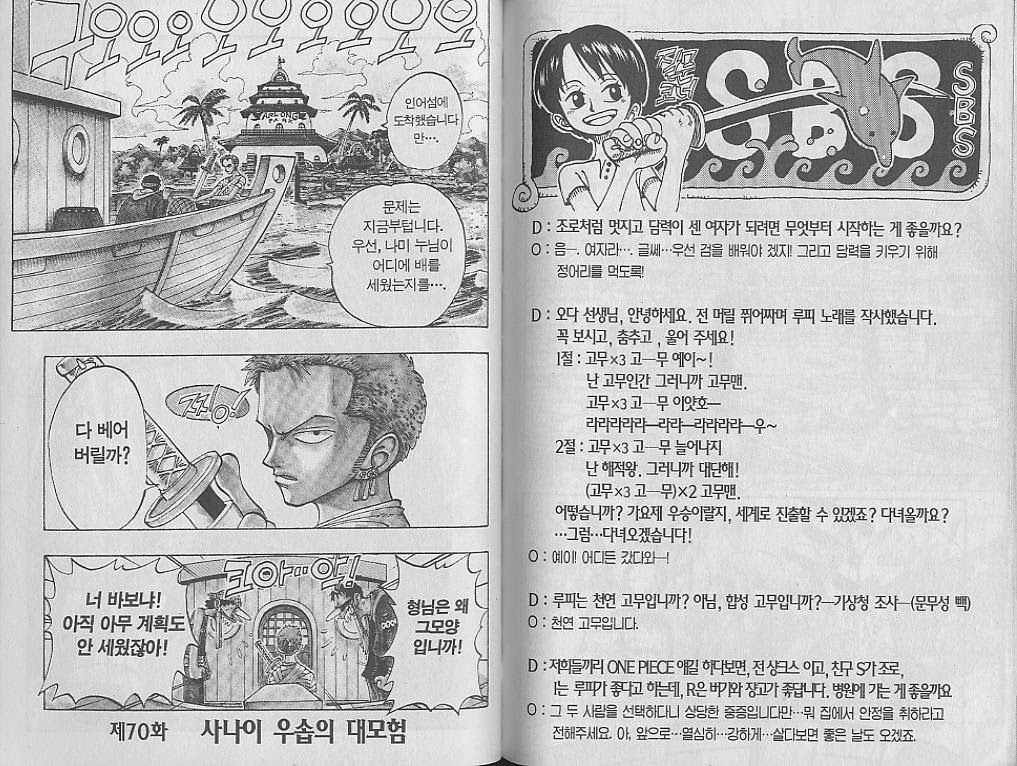 쿠오오오오오오오오오
아앙
인어섬에
도착했습니다
만….
문제는
지금부텁니다.
우선, 나미 누님이
어디에 배를
세웠는지를….
다 베어
버릴까?
쩌엉!
크아――악!
너 바보냐!
아직 아무 계획도
안 세웠잖아!
형님은 왜
그모양
입니까!
제70화 사나이 우솝의 대모험
질문코너
SBS
SBS
D : 조로처럼 멋지고 담력이 센 여자가 되려면 무엇부터 시작하는 게 좋을까요?
O : 음―. 여자라…. 글쎄…우선 검을 배워야 겠지! 그리고 담력을 키우기 위해
정어리를 먹도록!
D : 오다 선생님, 안녕하세요. 전 머릴 쥐어짜며 루피 노래를 작사했습니다.
꼭 보시고, 춤추고 , 울어 주세요!
1절 : 고무×3 고―무 예이~!
난 고무인간 그러니까 고무맨.
고무×3 고―무 이얏호―
라라라라라―라라―라라라라―우~
2절 : 고무×3 고―무 늘어나지
난 해적왕. 그러니까 대단해!
(고무×3 고―무)×2 고무맨.
어떻습니까? 가요제 우승이랄지, 세계로 진출할 수 있겠죠? 다녀올까요?
…그럼…다녀오겠습니다!
O : 예이! 어디든 갔다와―!
D : 루피는 천연 고무입니까? 아님, 합성 고무입니까?―가상청 조사―(문무성 빽)
O : 천연 고무입니다.
D : 저희들끼리 ONE PIECE 얘길 하다보면, 전 샹크스 이고, 친구 S가 조로,
I는 루피가 좋다고 하는데, R은 버기와 장고가 좋답니다. 병원에 가는 게 좋을까요
O : 그 두 사람을 선택하다니 상당한 중증입니다만…뭐 집에서 안정을 취하라고
전해주세요. 아, 앞으로…열심히…강하게…살다보면 좋은 날도 오겠죠.